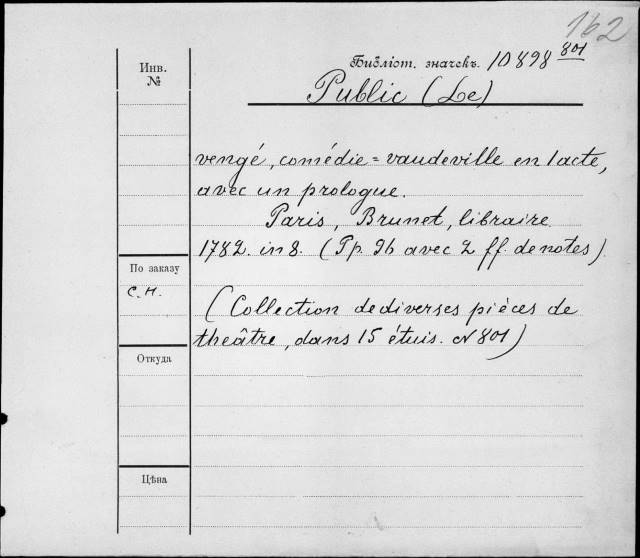 162
Инв.
№
Библіот. значекъ. 10898 801
Public (Le)
vengé, comédie=vaudeville en 1 acte,
avec un prologue.
Paris, Brunet, libraire
1782. in 8. (Pp. 96 avec 2 ff. de notes)
По заказу
С.Н.
(Collection de diverses pièces de
theâtre, dans 15 étuis. № 801)
Откуда
Цѣна